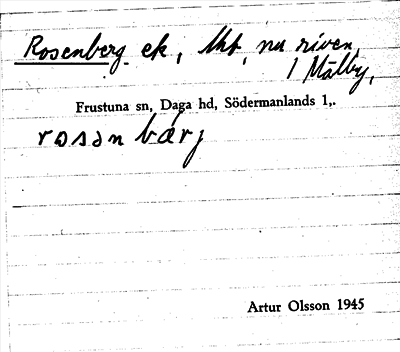 Rosenberg ek, lht, nu riven,
1 Mälby,
Frustuna sn, Daga hd, Södermanlands l,.
rosən bærj
Artur Olsson 1945